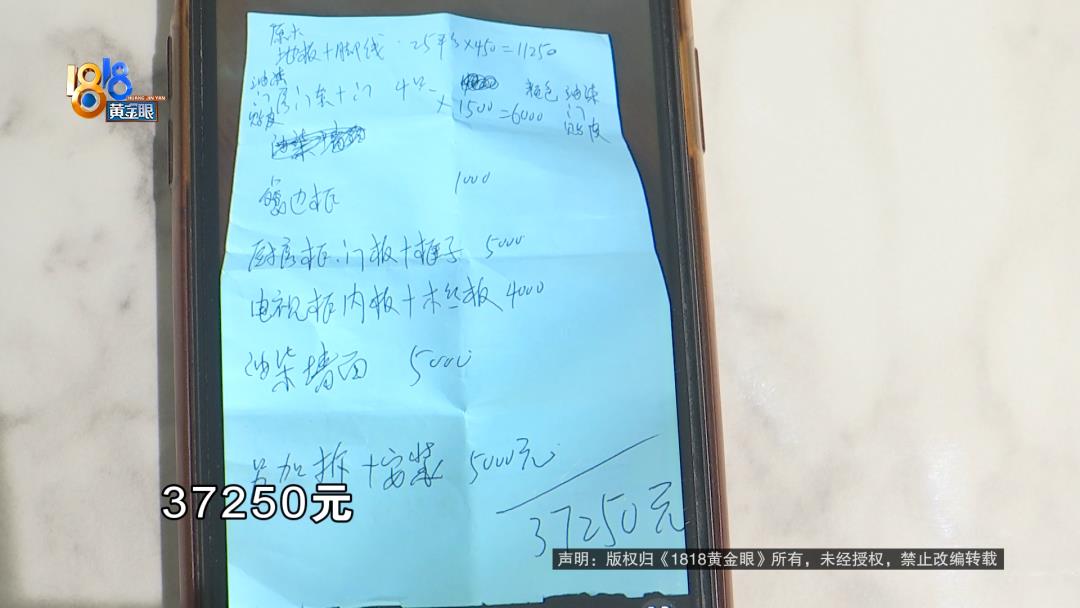 原木
地板+脚线 25平方×450=11250
油漆
门房门套+门 4个 ×1500=6000 颜色 油漆
贴皮 门
贴皮
油漆墙面
窗边柜 1000
厨房柜门板+柜子 5000
电视柜内板+木丝板 4000
油柒墙面 5000
另加拆+安装 5000元
37250元
1818
HUANG JIN YAN
黄金眼
37250元
声明：版权归《1818黄金眼》所有，未经授权，禁止改编转载